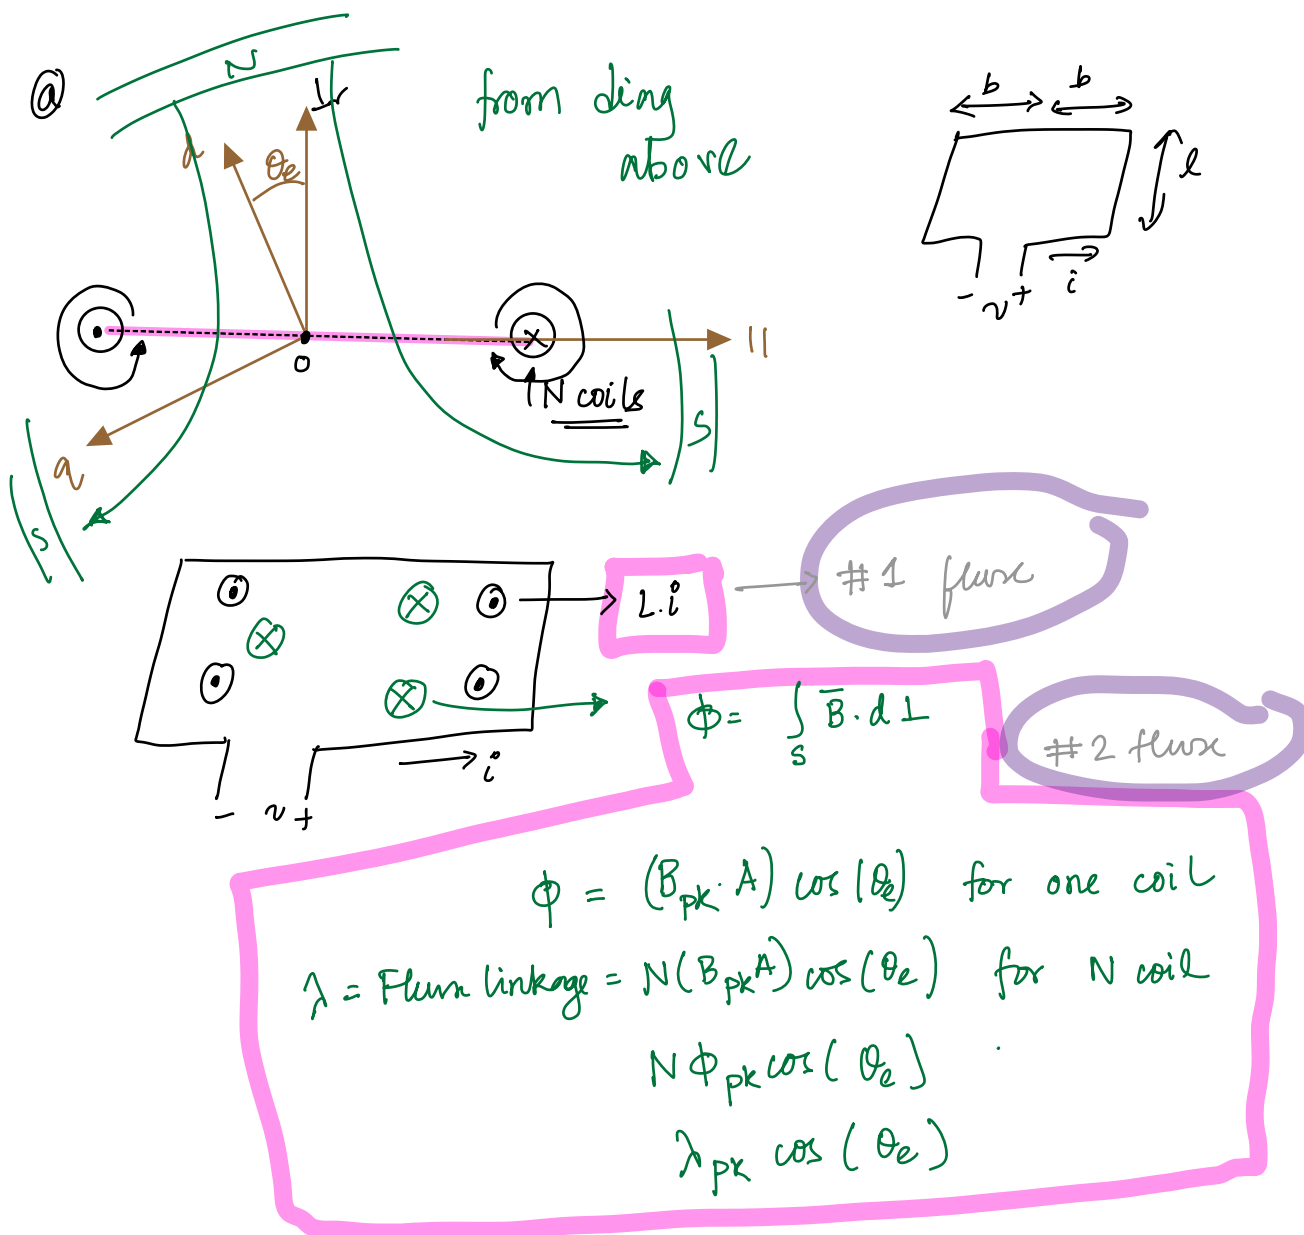 @
N
⊥r
from diag
above
d
θe
b b
l
- v + i
O
||
N coils
S
q
S
L.i
#1 flux
ϕ = ∫s B̅. d⊥
#2 flux
i
- v +
ϕ = (Bpk. A) cos(θe) for one coil
λ = Flux linkage = N(BpkA) cos(θe) for N coil
Nϕpk cos(θe)
λpk cos(θe)